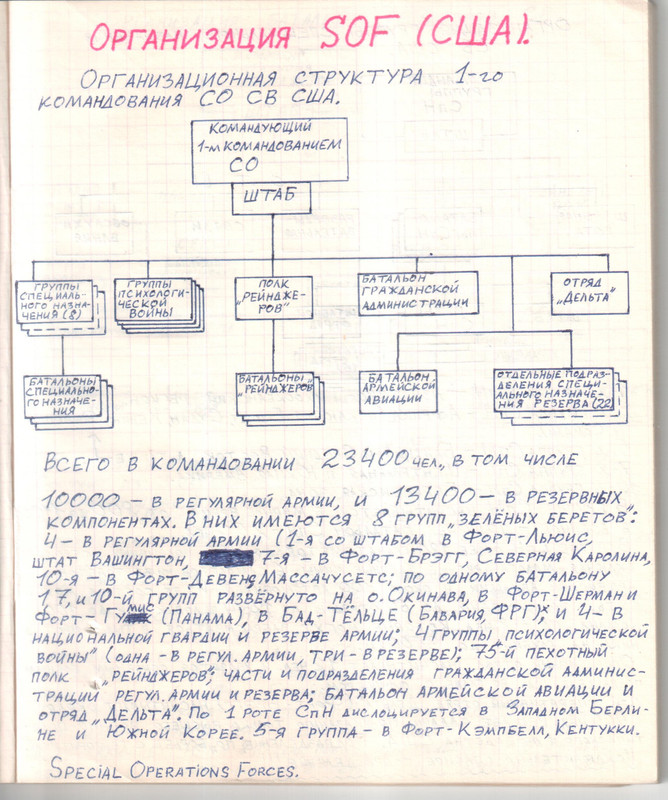 ОРГАНИЗАЦИЯ SOF (США).
ОРГАНИЗАЦИОННАЯ СТРУКТУРА 1-ГО
КОМАНДОВАНИЯ СО СВ США.
КОМАНДУЮЩИЙ
1-М КОМАНДОВАНИЕМ
СО
ШТАБ
ГРУППЫ
СПЕЦИАЛЬ-
НОГО НАЗНА-
ЧЕНИЯ (8)
ГРУППЫ
ПСИХОЛОГИ-
ЧЕСКОЙ
ВОЙНЫ
ПОЛК
„РЕЙНДЖЕ-
РОВ"
БАТАЛЬОН
ГРАЖДАНСКОЙ
АДМИНИСТРАЦИИ
ОТРЯД
„ДЕЛЬТА"
БАТАЛЬОНЫ
СПЕЦИАЛЬНО-
ГО НАЗНАЧЕ-
НИЯ
БАТАЛЬОНЫ
„РЕЙНДЖЕРОВ"
БАТАЛЬОН
АРМЕЙСКОЙ
АВИАЦИИ
ОТДЕЛЬНЫЕ ПОДРАЗ-
ДЕЛЕНИЯ СПЕЦИ-
АЛЬНОГО НАЗНАЧЕ-
НИЯ РЕЗЕРВА (22)
ВСЕГО В КОМАНДОВАНИИ 23400 ЧЕЛ., В ТОМ ЧИСЛЕ
10000 – В РЕГУЛЯРНОЙ АРМИИ, И 13400 – В РЕЗЕРВНЫХ
КОМПОНЕНТАХ. В НИХ ИМЕЮТСЯ 8 ГРУПП „ЗЕЛЁНЫХ БЕРЕТОВ":
4 – В РЕГУЛЯРНОЙ АРМИИ (1-Я СО ШТАБОМ В ФОРТ-ЛЬЮИС,
ШТАТ ВАШИНГТОН, 7-Я – В ФОРТ-БРЭГГ, СЕВЕРНАЯ КАРОЛИНА,
10-Я – В ФОРТ-ДЕВЕНС, МАССАЧУСЕТС; ПО ОДНОМУ БАТАЛЬОНУ
1,7, И 10-Й ГРУПП РАЗВЁРНУТО НА О. ОКИНАВА, В ФОРТ-ШЕРМАН И
ФОРТ-ГУМИС (ПАНАМА), В БАД-ТЁЛЬЦЕ (БАВАРИЯ, ФРГ); И 4 – В
НАЦИОНАЛЬНОЙ ГВАРДИИ И РЕЗЕРВЕ АРМИИ; 4 ГРУППЫ „ПСИХОЛОГИЧЕСКОЙ
ВОЙНЫ" (ОДНА – В РЕГУЛ. АРМИИ, ТРИ – В РЕЗЕРВЕ); 75-Й ПЕХОТНЫЙ
ПОЛК „РЕЙНДЖЕРОВ"; ЧАСТИ И ПОДРАЗДЕЛЕНИЯ ГРАЖДАНСКОЙ АДМИНИС-
ТРАЦИИ РЕГУЛ. АРМИИ И РЕЗЕРВА; БАТАЛЬОН АРМЕЙСКОЙ АВИАЦИИ И
ОТРЯД „ДЕЛЬТА". ПО 1 РОТЕ СПН ДИСЛОЦИРУЕТСЯ В ЗАПАДНОМ БЕРЛИ-
НЕ И ЮЖНОЙ КОРЕЕ. 5-Я ГРУППА – В ФОРТ-КЭМПБЕЛЛ, КЕНТУККИ.
SPECIAL OPERATIONS FORCES.